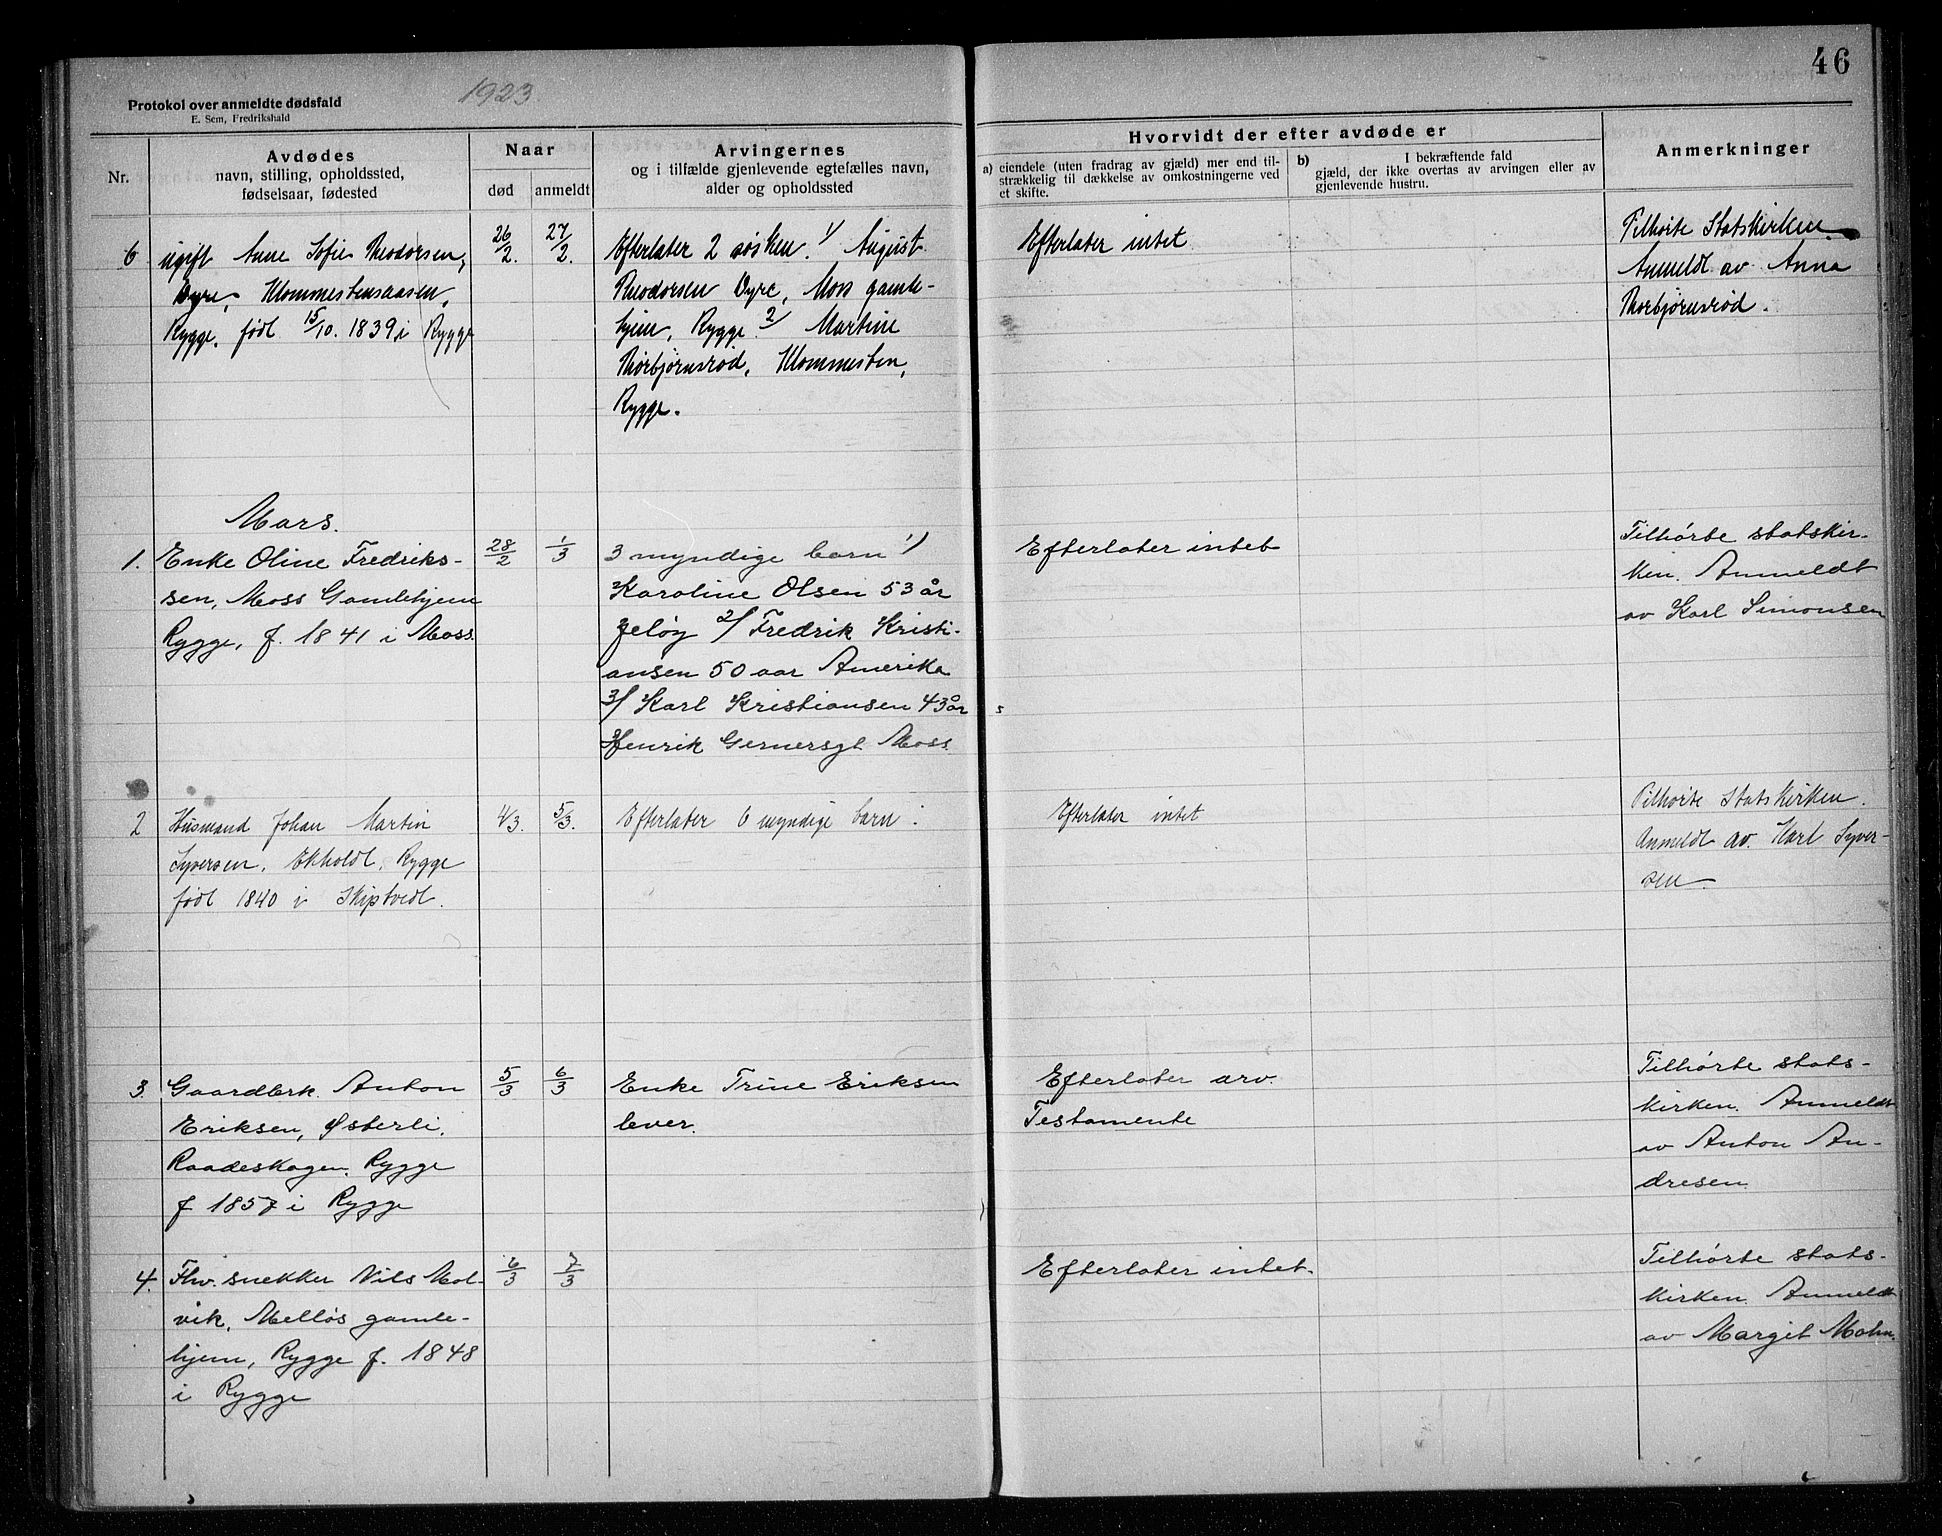 46
1923.
Protokol over anmeldte dødsfald
E. Sem, Fredrikshald
Nr.
Avdødes
navn, stilling, opholdssted,
fødselsaar, fødested
Naar
død
anmeldt
Arvingernes
og i tilfælde gjenlevende egtefælles navn,
alder og opholdssted
Hvorvidt der efter avdøde er
a) eiendele (uten fradrag av gjæld) mer end til-
strækkelig til dækkelse av omkostningerne ved
et skifte.
b) I bekræftende fald
gjæld, der ikke overtas av arvingen eller av
gjenlevende hustru.
Anmerkninger
6
ugift Anne Sofie Theodorsen,
Dyre, Klommestensaasen,
Rygge, født 15/10. 1839 i Rygge
26/2.
27/2.
Efterlater 2 søsken. 1/ August
Theodorsen Dyre, Moss gamle-
hjem, Rygge 2/ Martine
Thorbjørnsrød, Klommesten,
Rygge.
Efterlater intet
Tilhørte Statskirken.
Anmeldt av Anna
Thorbjørnsrød.
Mars.
1.
Enke Oline Fredriks-
sen, Moss Gamlehjem
Rygge, f. 1841 i Moss
28/2
1/3
3 myndige barn 1/
Karoline Olsen 53 år
Jeløy 2/ Fredrik Kristi-
ansen 50 aar Amerika
3/ Karl Kristiansen 43 år
Henrik Gernersgt Moss
Efterlater intet
Tilhørte statskir-
ken. Anmeldt
av Karl Simonsen
2
Husmand Johan Martin
Syversen, Ekholdt, Rygge
født 1840 i Skiptvedt.
4/3.
5/3.
Efterlater 6 myndige barn.
Efterlater intet
Tilhørte Statskirken.
Anmeldt av. Karl Syver-
sen
3.
Gaardbrk. Anton
Eriksen, Østerli,
Raadeskogen. Rygge
f 1857 i Rygge
5/3
6/3
Enke Trine Eriksen
lever.
Efterlater arv.
Testamente
Tilhørte stats-
kirken. Anmeldt
av Anton An-
dresen
4.
Fhv. snekker Nils Mol-
vik, Melløs gamle-
hjem, Rygge f. 1848
i Rygge
6/3
7/3
Efterlater intet.
Tilhørte stats-
kirken. Anmeldt
av Margit Mohn.